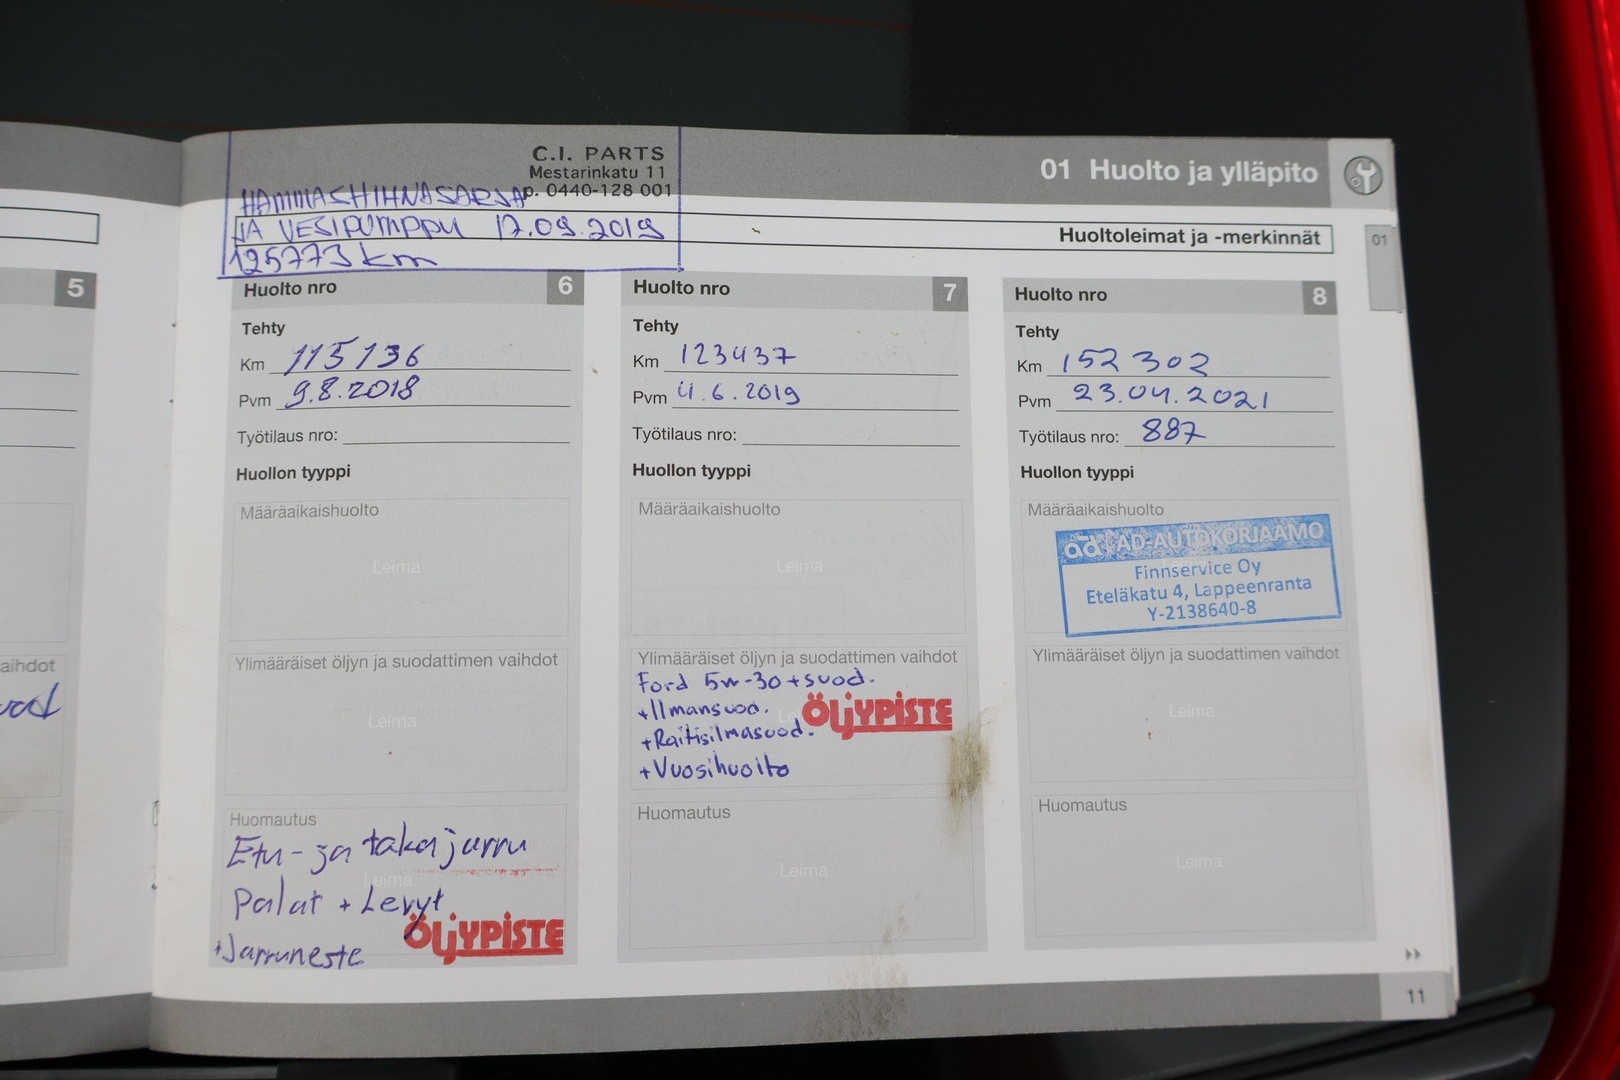 C.I. PARTS
Mestarinkatu 11
p. 0440-128 001
HAMMASHIHNASARJA
JA VESIPUMPPU 17.09.2019
125773 km
01 Huolto ja ylläpito
Huoltoleimat ja -merkinnät
01
5
aihdot
Huolto nro 6
Tehty
Km 115136
Pvm 9.8.2018
Työtilaus nro:
Huollon tyyppi
Määräaikaishuolto
Leima
Ylimääräiset öljyn ja suodattimen vaihdot
Leima
Huomautus
Etu- ja takajarru
Leima
Palat + Levyt
+Jarruneste
ÖLJYPISTE
Huolto nro 7
Tehty
Km 123437
Pvm 4.6.2019
Työtilaus nro:
Huollon tyyppi
Määräaikaishuolto
Leima
Ylimääräiset öljyn ja suodattimen vaihdot
Ford 5w-30 + suod.
+Ilmansuod. Le
ÖLJYPISTE
+Raitisilmasuod.
+Vuosihuolto
Huomautus
Leima
Huolto nro 8
Tehty
Km 152 302
Pvm 23.04.2021
Työtilaus nro: 887
Huollon tyyppi
Määräaikaishuolto
ad AD-AUTOKORJAAMO
Finnservice Oy
Eteläkatu 4, Lappeenranta
Y-2138640-8
Ylimääräiset öljyn ja suodattimen vaihdot
Leima
Huomautus
Leima
11